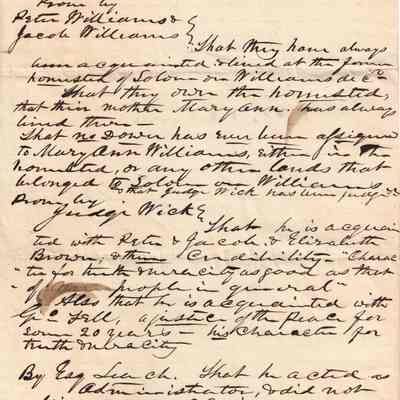 Prove by
Peter Williams &
Jacob Williams
That they have always
been acquainted & lived at the former
homestead of Solomon Williams dec'd
That they own the homestead,
that their mother Mary Ann has always
lived there –
That no Dower has ever been assigned
to Mary Ann Williams, either in the
homestead, or any other lands that
belonged to Solomon Williams
& that Judge Wick has been Judge &c
Prove by
Judge Wick
That he is acquain
ted with Peter & Jacob & Elizabeth
Brown, & their Credibility – "Charac
"ter for truth & veracity as good as that
"of people in general"
Also that he is acquainted with
Geo. Fell, a justice of the Peace for
some 20 years – his character for
truth & veracity
By Esq Leach. That he acted as
Administrator, & did not